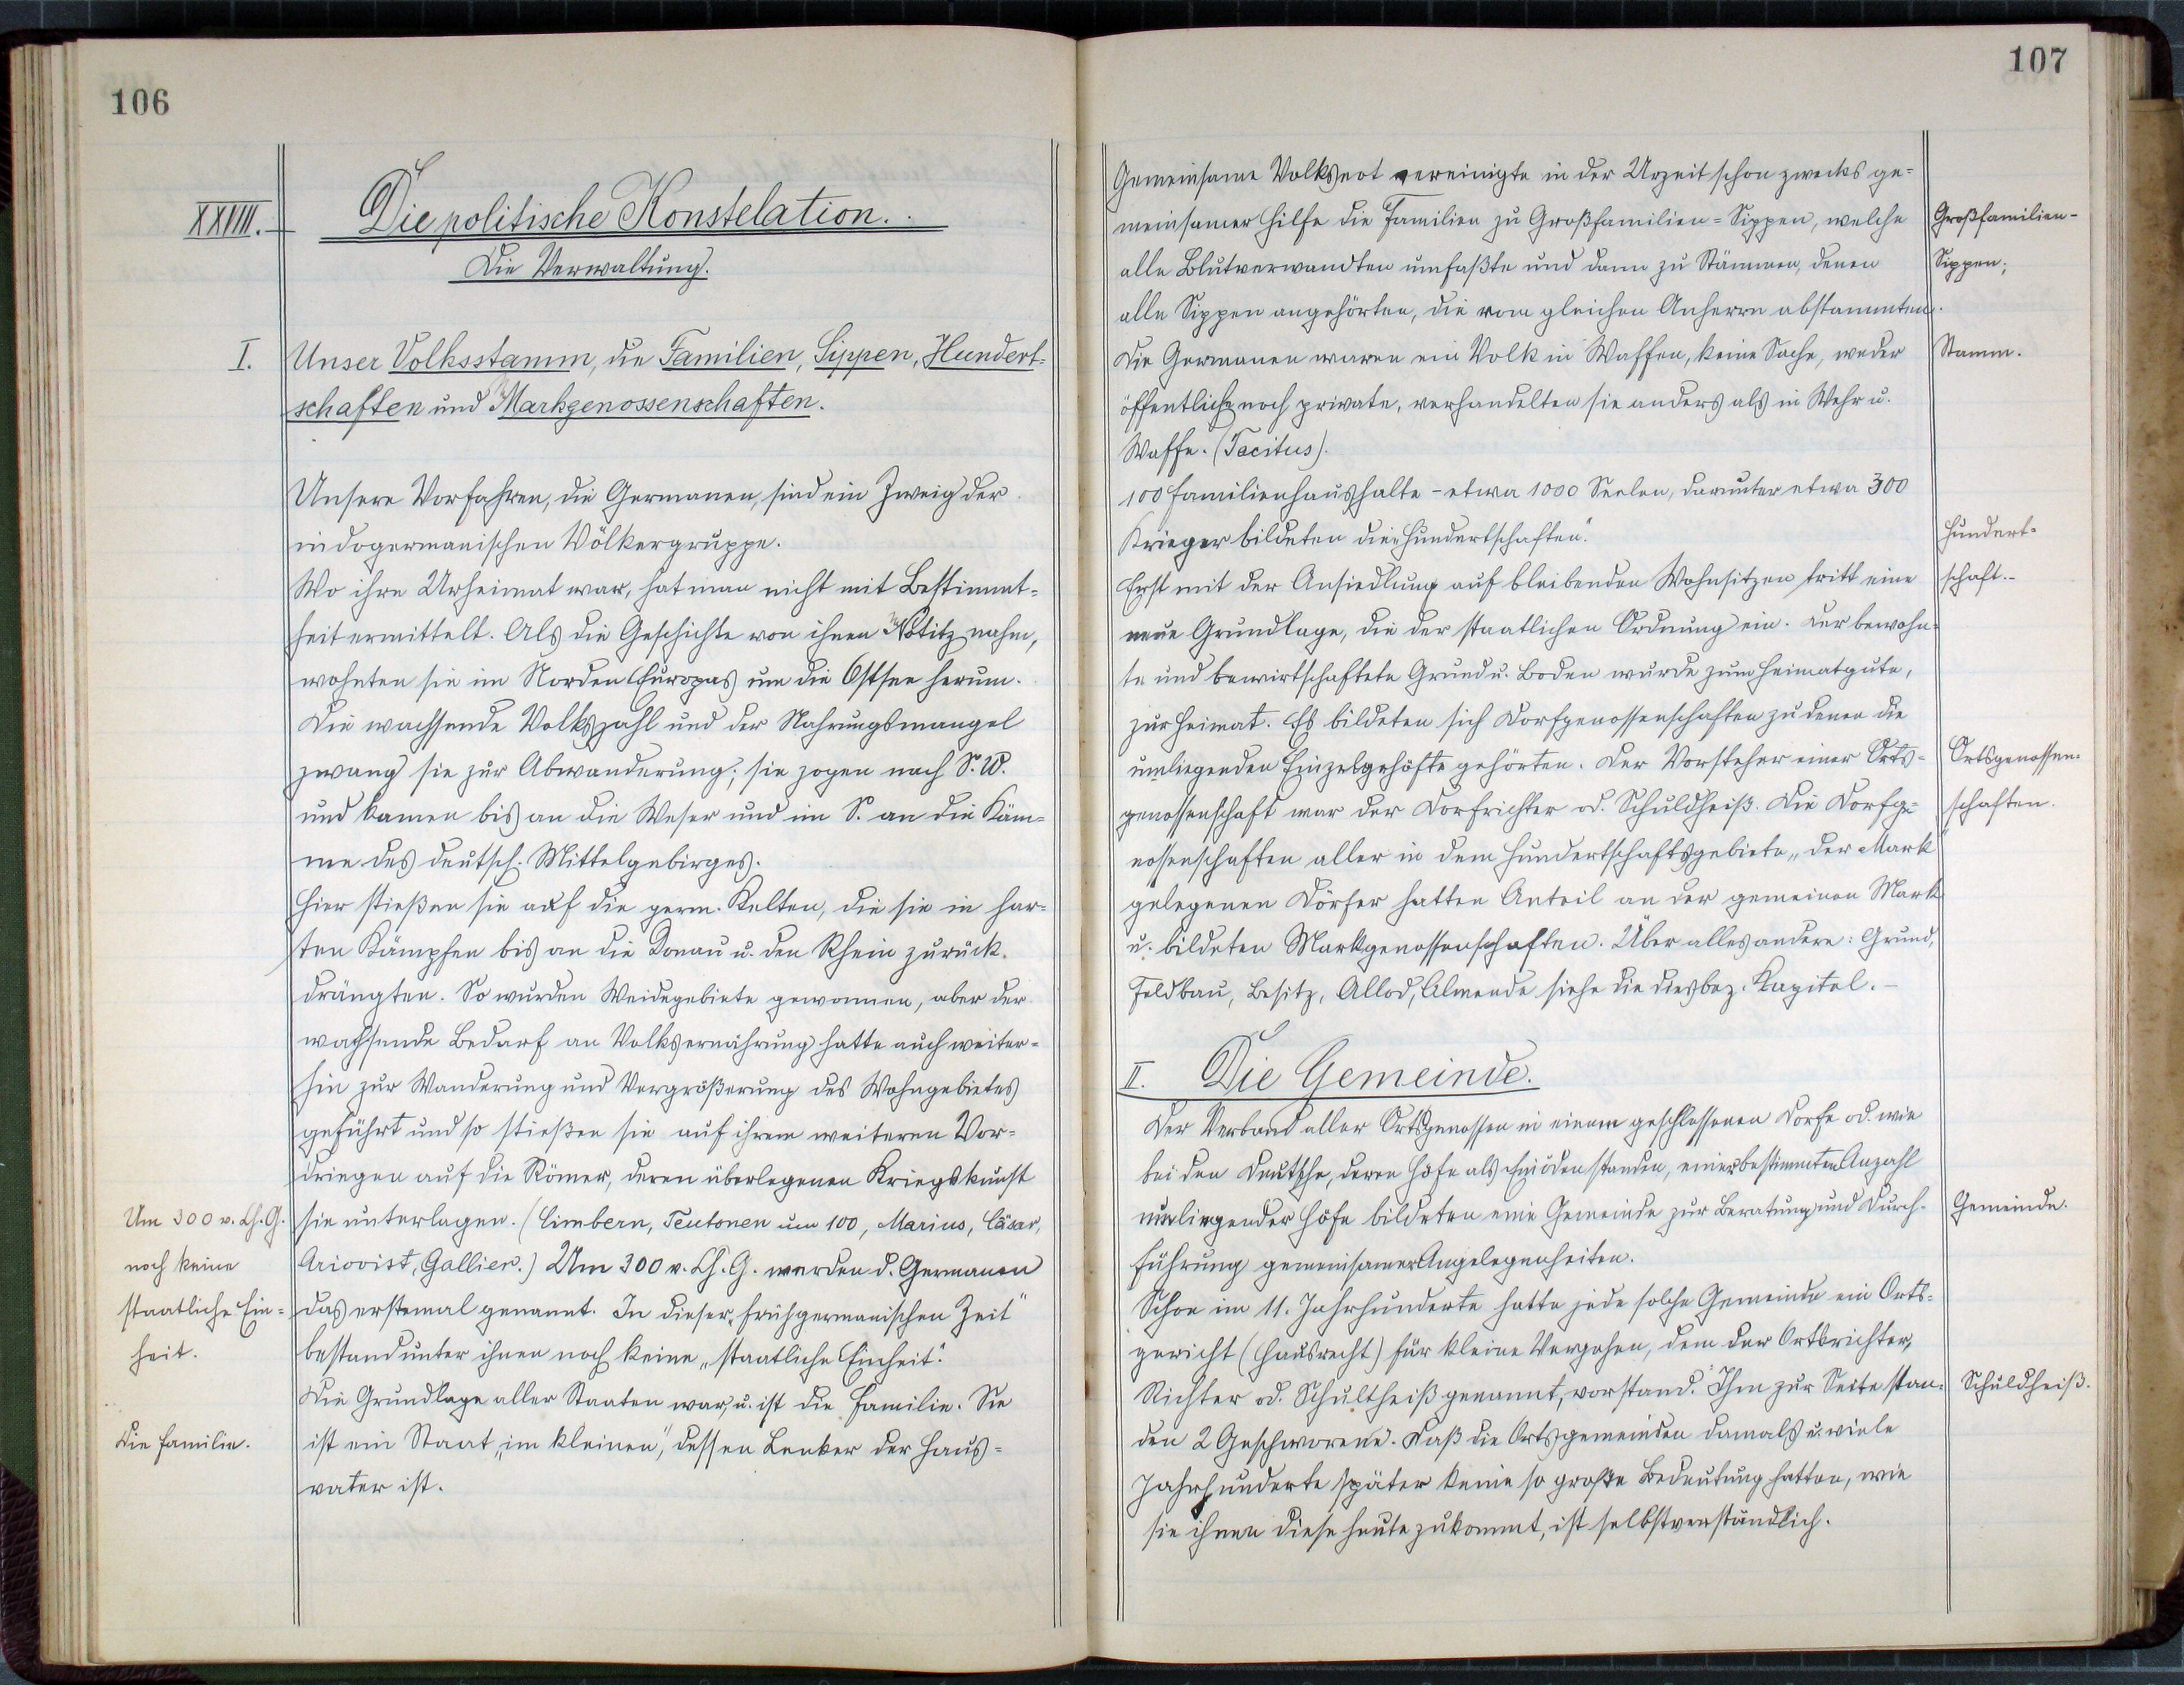 106
XXVIII.
Die politische Konstelation.
Die Verwaltung.
I.
Unser Volksstamm, die Familien, Sippen, Hundert=
schaften und Markgenossenschaften.
Unsere Vorfahren, die Germanen, sind ein Zweig der
indogermanischen Völkergruppe.
Wo ihre Urheimat war, hat man nicht mit Bestimmt=
heit ermittelt. Als die Geschichte von ihnen Notitz nahm,
wohnten sie im Norden Europas um die Ostsee herum.
Die wachsende Volkszahl und der Nahrungsmangel
zwang sie zur Abwanderung; sie zogen nach S. W.
und kamen bis an die Weser und im S. an die Käm=
me des deutsch. Mittelgebirges.
Hier stießen sie auf die germ. Kelten, die sie in har=
ten Kämpfen bis an die Donau u. den Rhein zurück.
drängten. So wurden Weidegebiete gewonnen, aber der
wachsende Bedarf an Volksernährung hatte auch weiter=
hin zur Wanderung und Vergrößerung des Wohngebietes
geführt und so stießen sie auf ihrem weiteren Vor=
dringen auf die Römer, deren überlegenen Kriegskunst
Um 300 v. Ch. G.
sie unterlagen. (Cimbern, Teutonen um 100, Marius, Cäsar,
noch keine
Ariovist, Gallier.) Um 300 v. Ch. G. werden d. Germanen
staatliche Ein=
das erstemal genannt. In dieser „frühgermanischen Zeit"
heit.
bestand unter ihnen noch keine „staatliche Einheit".
Die Grundlage aller Staaten war, u. ist die Familie. Sie
Die Familie.
ist ein Staat „im kleinen", dessen Lenker der Haus=
vater ist.
107
Gemeinsame Volksnot vereinigte in der Urzeit schon zwecks ge=
meinsamer Hilfe die Familien zu Großfamilien=Sippen, welche
Großfamilien-
alle Blutverwandten umfaßte und dann zu Stämmen, denen
Sippen;
alle Sippen angehörten, die vom gleichen Anherrn abstammten.
Die Germanen waren ein Volk in Waffen, keine Sache, weder
Stamm.
öffentliche noch private, verhandelten sie anders als in Wehr u.
Waffe. (Tacitus).
100 Familienhaushalte - etwa 1000 Seelen, darunter etwa 300
Krieger bildeten die „Hundertschaften".
Hundert=
Erst mit der Ansiedlung auf bleibenden Wohnsitzen tritt eine
schaft.-
neue Grundlage, die der staatlichen Ordnung ein. Der bewohn=
te und bewirtschaftete Grund u. Boden wurde zum Heimatgute,
zur Heimat. Es bildeten sich Dorfgenossenschaften zu denen die
umliegenden Einzelgehöfte gehörten. Der Vorsteher einer Orts=
Ortsgenossen-
genossenschaft war der Dorfrichter od. Schuldheiß. Die Dorfge=
schaften.
nossenschaften aller in dem Hundertschaftsgebiete „der Mark"
gelegenen Dörfer hatten Anteil an der gemeinen Mark
u. bildeten Markgenossenschaften. Über alles andere: Grund,
Feldbau, Besitz, Allod, Almende siehe die diesbez. Kapitel.-
II. Die Gemeinde.
Der Verband aller Ortsgenossen in einem geschlossenen Dorfe od. wie
bei den Deutsche, deren Höfe als Einöden standen, einer bestimmten Anzahl
umliegender Höfe bildeten eine Gemeinde zur Beratung und Durch-
Gemeinde.
führung gemeinsamer Angelegenheiten.
Schon im 11. Jahrhunderte hatte jede solche Gemeinde ein Orts=
gericht (Hausrecht) für kleine Vergehen, dem der Ortsrichter,
Richter od. Schultheiß genannt, vorstand. Ihm zur Seite stan-
Schuldheiß.
den 2 Geschworene. Daß die Ortsgemeinden damals u. viele
Jahrhunderte später keine so große Bedeutung hatten, wie
sie ihnen diese heute zukommt, ist selbstverständlich.